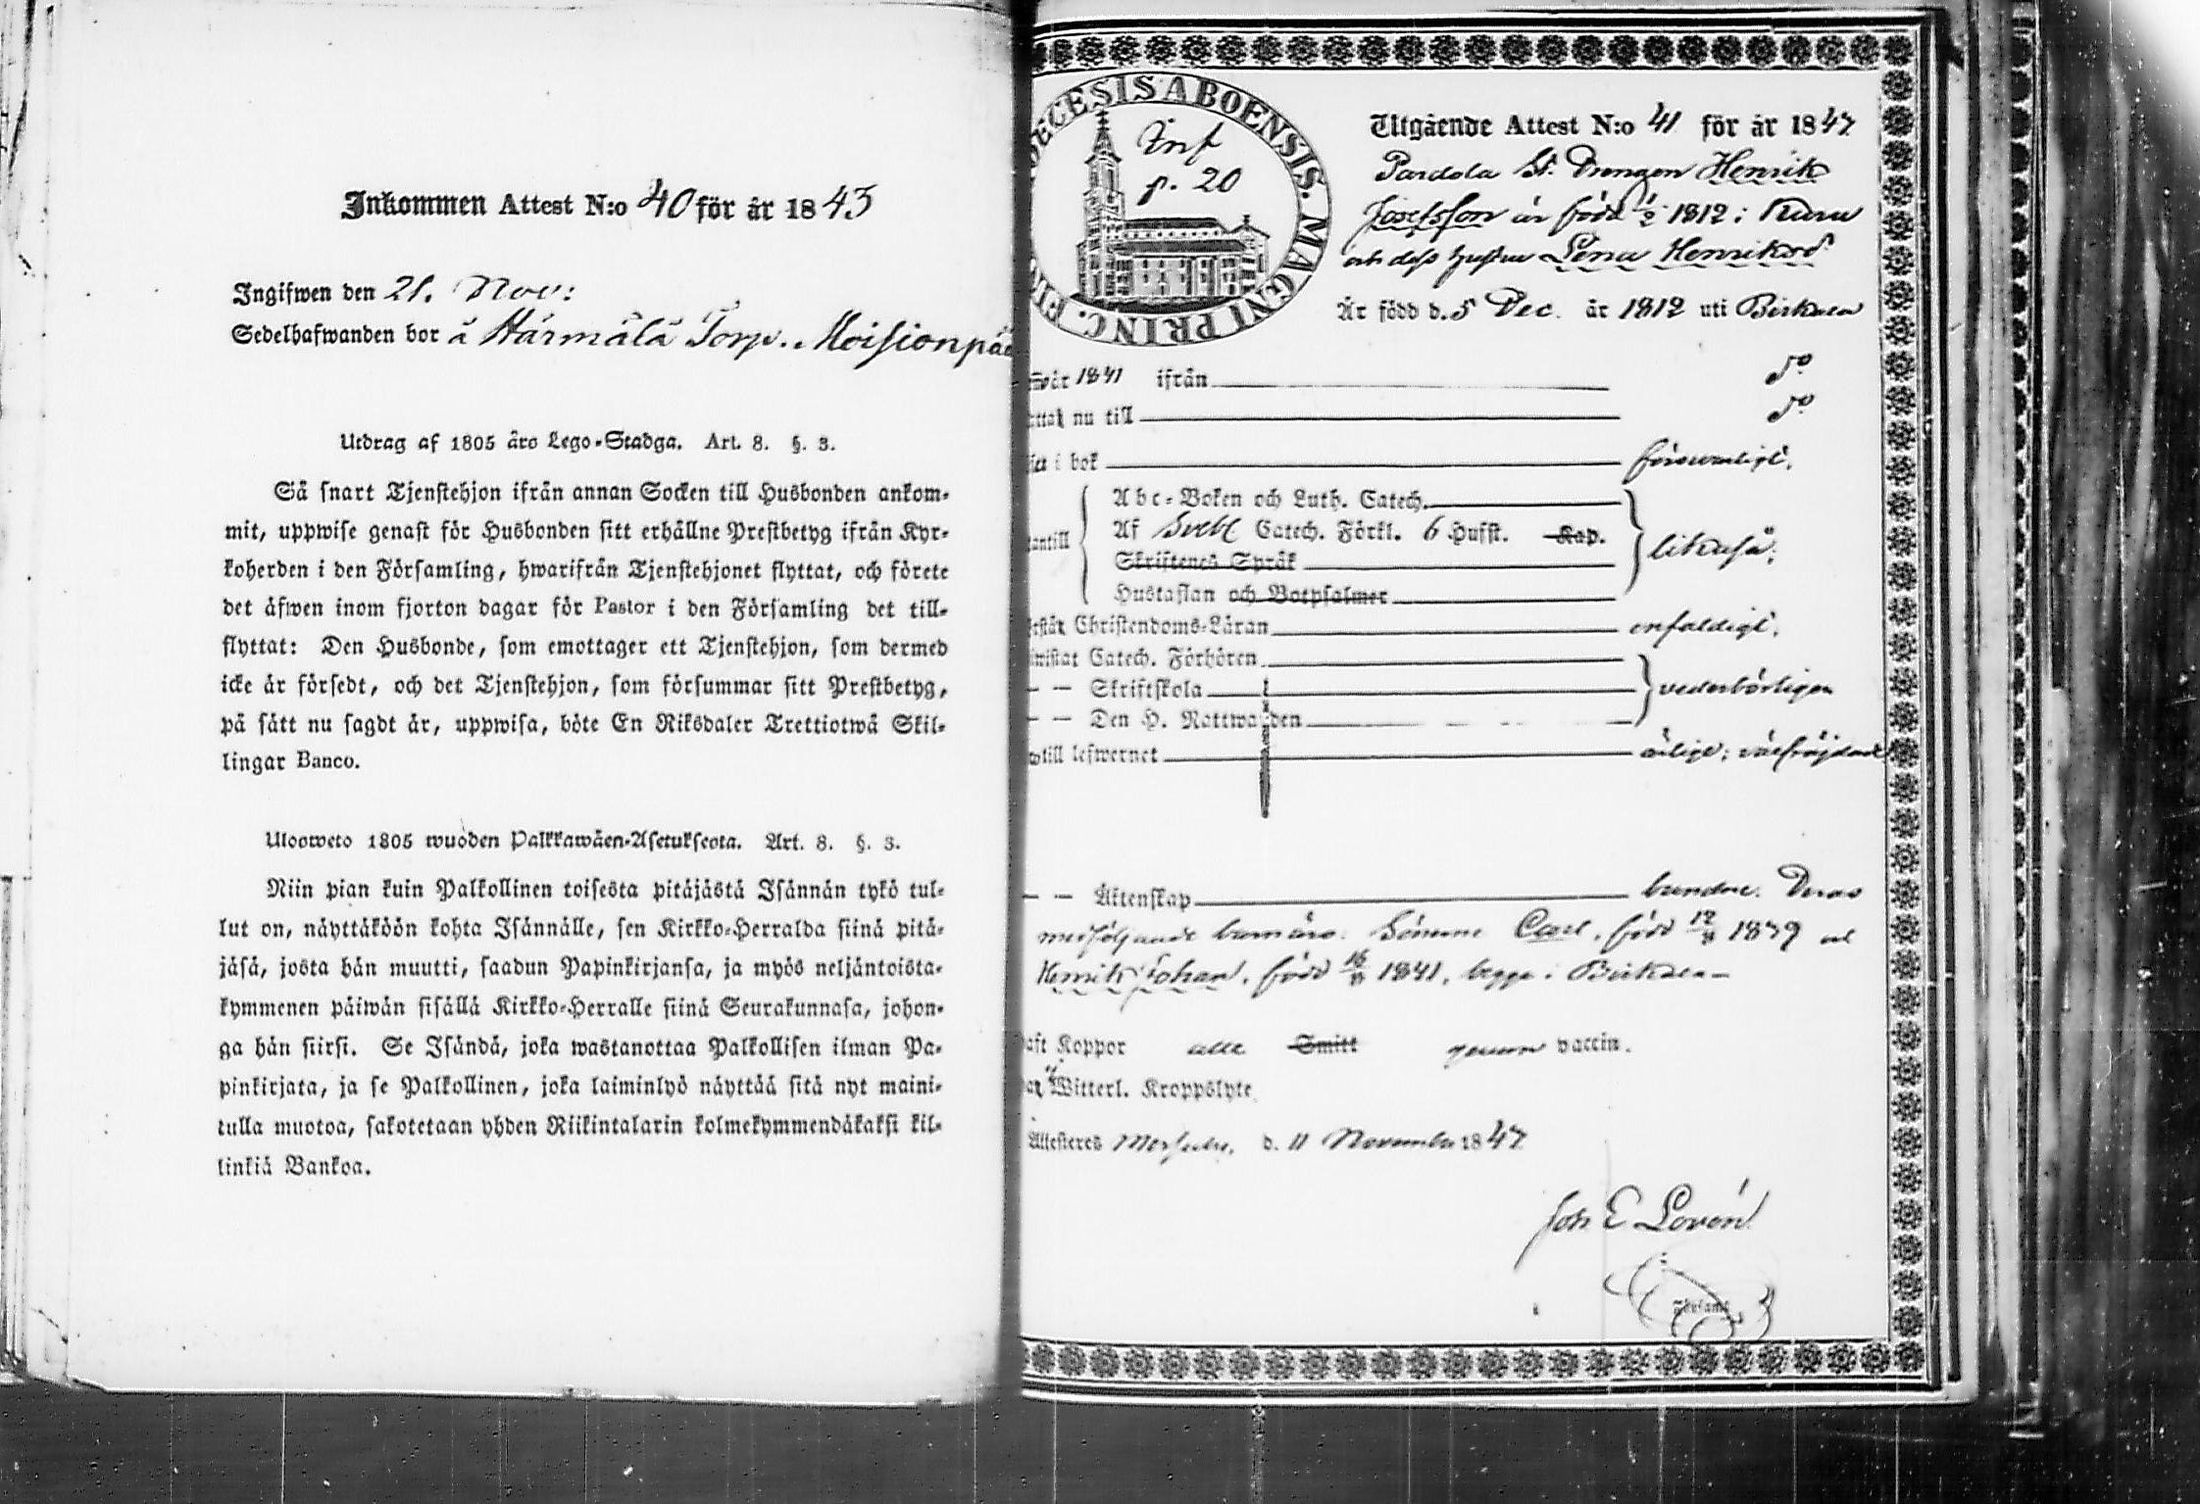 Inkommen Attest N:o 40 för år 1843
Ingifwen den 21. Nov:
Sedelhafwanden bor å Härmälä Torp. Moisionpää
Utdrag af 1805 års Lego-Stadga. Art. 8. §. 3.
Så snart Tjenstehjon ifrån annan Socken till Husbonden ankom-
mit, uppwise genast för Husbonden sitt erhållne Prestbetyg ifrån Kyr-
koherden i den Församling, hwarifrån Tjenstehjonet flyttat, och förete
det äfwen inom fjorton dagar för Pastor i den Församling det till-
flyttat: Den Husbonde, som emottager ett Tjenstehjon, som dermed
icke är försedt, och det Tjenstehjon, som försummar sitt Prestbetyg,
på sätt nu sagdt är, uppwisa, böte En Riksdaler Trettiotwå Skil-
lingar Banco.
Ulosweto 1805 wuoden Palkkawäen-Asetuksesta. Art. 8. §. 3.
Niin pian kuin Palkollinen toisesta pitäjästä Isännän tykö tul-
lut on, näyttäköön kohta Isännälle, sen Kirkko-Herralda siinä pitä-
jäsä, josta hän muutti, saadun Papinkirjansa, ja myös neljäntoista-
kymmenen päiwän sisällä Kirkko-Herralle siinä Seurakunnasa, johon-
ga hän siirsi. Se Isändä, joka wastanottaa Palkollisen ilman Pa-
pinkirjata, ja se Palkollinen, joka laiminlyö näyttää sitä nyt maini-
tulla muotoa, sakotetaan yhden Riikintalarin kolmekymmendäkaksi kil-
linkiä Bankoa.
ECESIS ABOENSIS. MAGNI PRINC. FI
Inf
p. 20
Utgående Attest N:o 41 för år 1847
Pardola St. Drengen Henrik
Josefsson är född 1/2 1812 i Kuru
och dess hustru Lena Henriksd.
Är född d. 5 Dec. år 1812 uti Birkala
år 1841 ifrån do
nu till do
i bok försvarligt.
Abc-Boken och Luth. Catech.
antill Af Sveb. Catech. Förkl. 6 Hufst. Kap. likaså.
Skriftenes Språk
Hustaflan och Botpsalmer
Christendoms-Läran enfaldigt.
Catech. Förhören
— — Skriftskola vederbörligen
— — Den H. Nattwarden
till lefwernet ärlige; välfräjdade
— — Äktenskap bundne. Deras
medföljande barn äro: Sönerne Carl, född 12/8 1839 och
Henrik Johan, född 16/8 1841, begge i Birkala —
aft Koppor alle Smitt genom vaccin.
Witterl. Kroppslyte
Attesteres d. 11 November 1847
Joh E Lovén